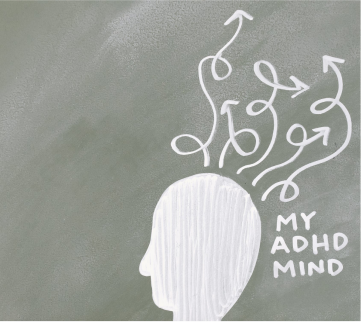 MY
ADHD
MIND